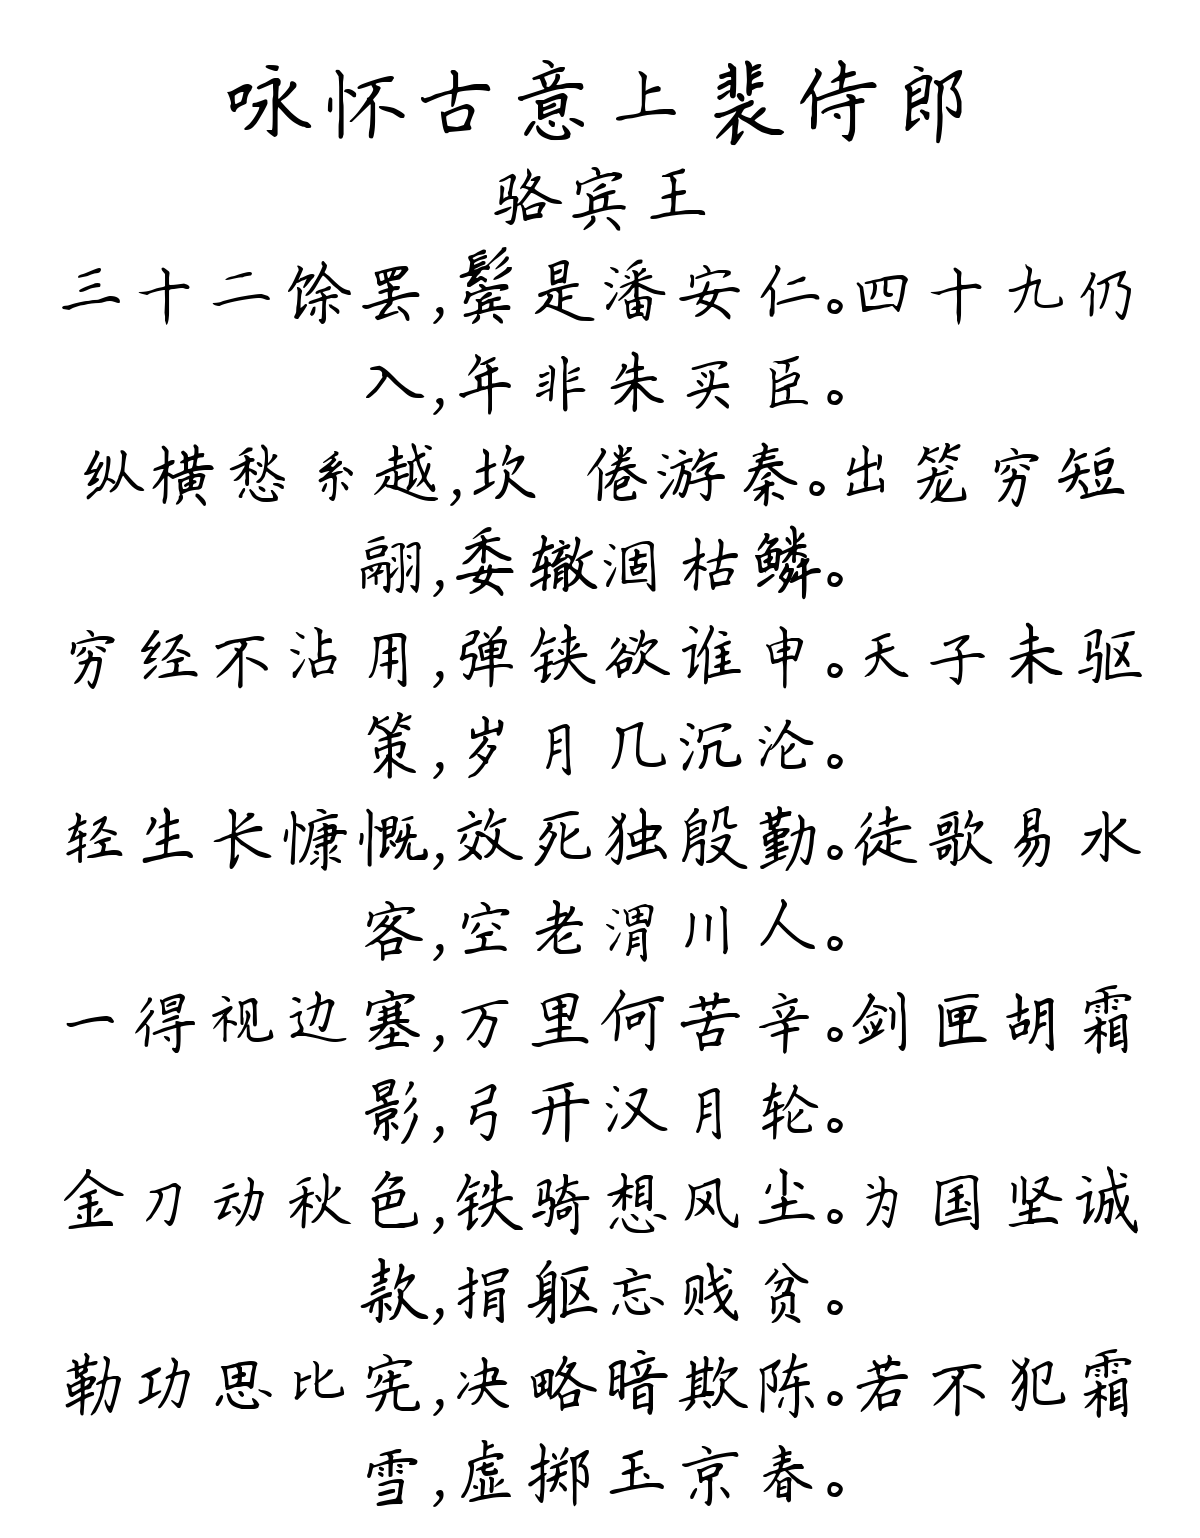 咏怀古意上裴侍郎
骆宾王
三十二馀罢,鬓是潘安仁。四十九仍
入,年非朱买臣。
纵横愁系越,坎 倦游秦。出笼穷短
翮,委辙涸枯鳞。
穷经不沾用,弹铗欲谁申。天子未驱
策,岁月几沉沦。
轻生长慷慨,效死独殷勤。徒歌易水
客,空老渭川人。
一得视边塞,万里何苦辛。剑匣胡霜
影,弓开汉月轮。
金刀动秋色,铁骑想风尘。为国坚诚
款,捐躯忘贱贫。
勒功思比宪,决略暗欺陈。若不犯霜
雪,虚掷玉京春。